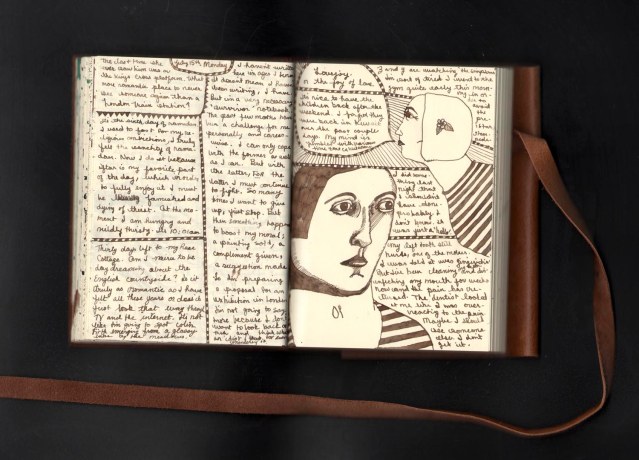 The last time she
July 15th. Monday
the Kings Cross platform. What
more romantic place to meet
than a
London train station?
the sixth day of ramadan
I used to fast for my re-
ligious convictions, I truly
felt the sanctity of rama-
dan. Now I do it because
iftar is my favorite part
of the day, which in order
to fully enjoy it I must
be famished and
dying of thirst. At the mo-
ment I am hungry and
mildly thirsty. Its 10:
Thirty days left to my Rose
Cottage. Am I naive to be
day dreaming about the
English countryside? Is it
truly as romantic as I have
felt all these years or does it
just look that way through
TV and the internet. It's not
like I'm going to spot Colin
Firth emerging from a
lake by the meadows.
I haven't
in ages. I
mean I have
been writing, I have
But in a very
"survivor" notebook.
The past few months have
been a challenge for me
personally and career
wise. I can only cope
with the former as well
as I can. But with
the latter, For the
latter I must continue
to fight. So many
times I want to give
up, just stop. But
then something happens
to boost my morale;
a painting sold, a
complement given,
a suggestion made
to be preparing
a proposal for an
exhibition in London
I'm not going to say
more because I don't
want to look back
housing
n the joy of love
Its nice to have the
children back after the
weekend. I forget they
were back in Kuwait
over the past couple
days. My mind is
Z and J are watching the
I'm sort of tired I went to the
gym quite early this morn-
ing.
I did some-
thing last
night that
I shouldn't
have done.
probably I
don't know. It
was just a "hello"
My left tooth still
hurts, one of the molars.
I was told it was gingivitis
But I've been cleaning and dis-
infecting my mouth for weeks
now and the pain has re-
The dentist looked
at me like I was over-
reacting to the pain
Maybe I should
see someone
else. I don't
get it.